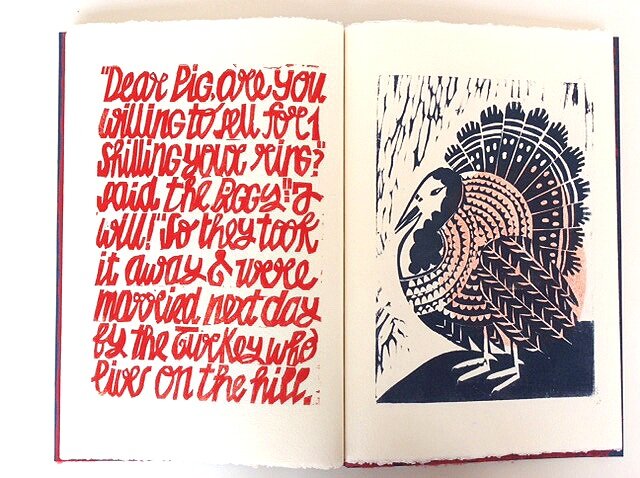 "Dear Pig, are you
willing to sell for 1
shilling your ring?"
said the Piggy "I
will!" So they took
it away & were
married next day
by the Turkey who
lives on the hill.